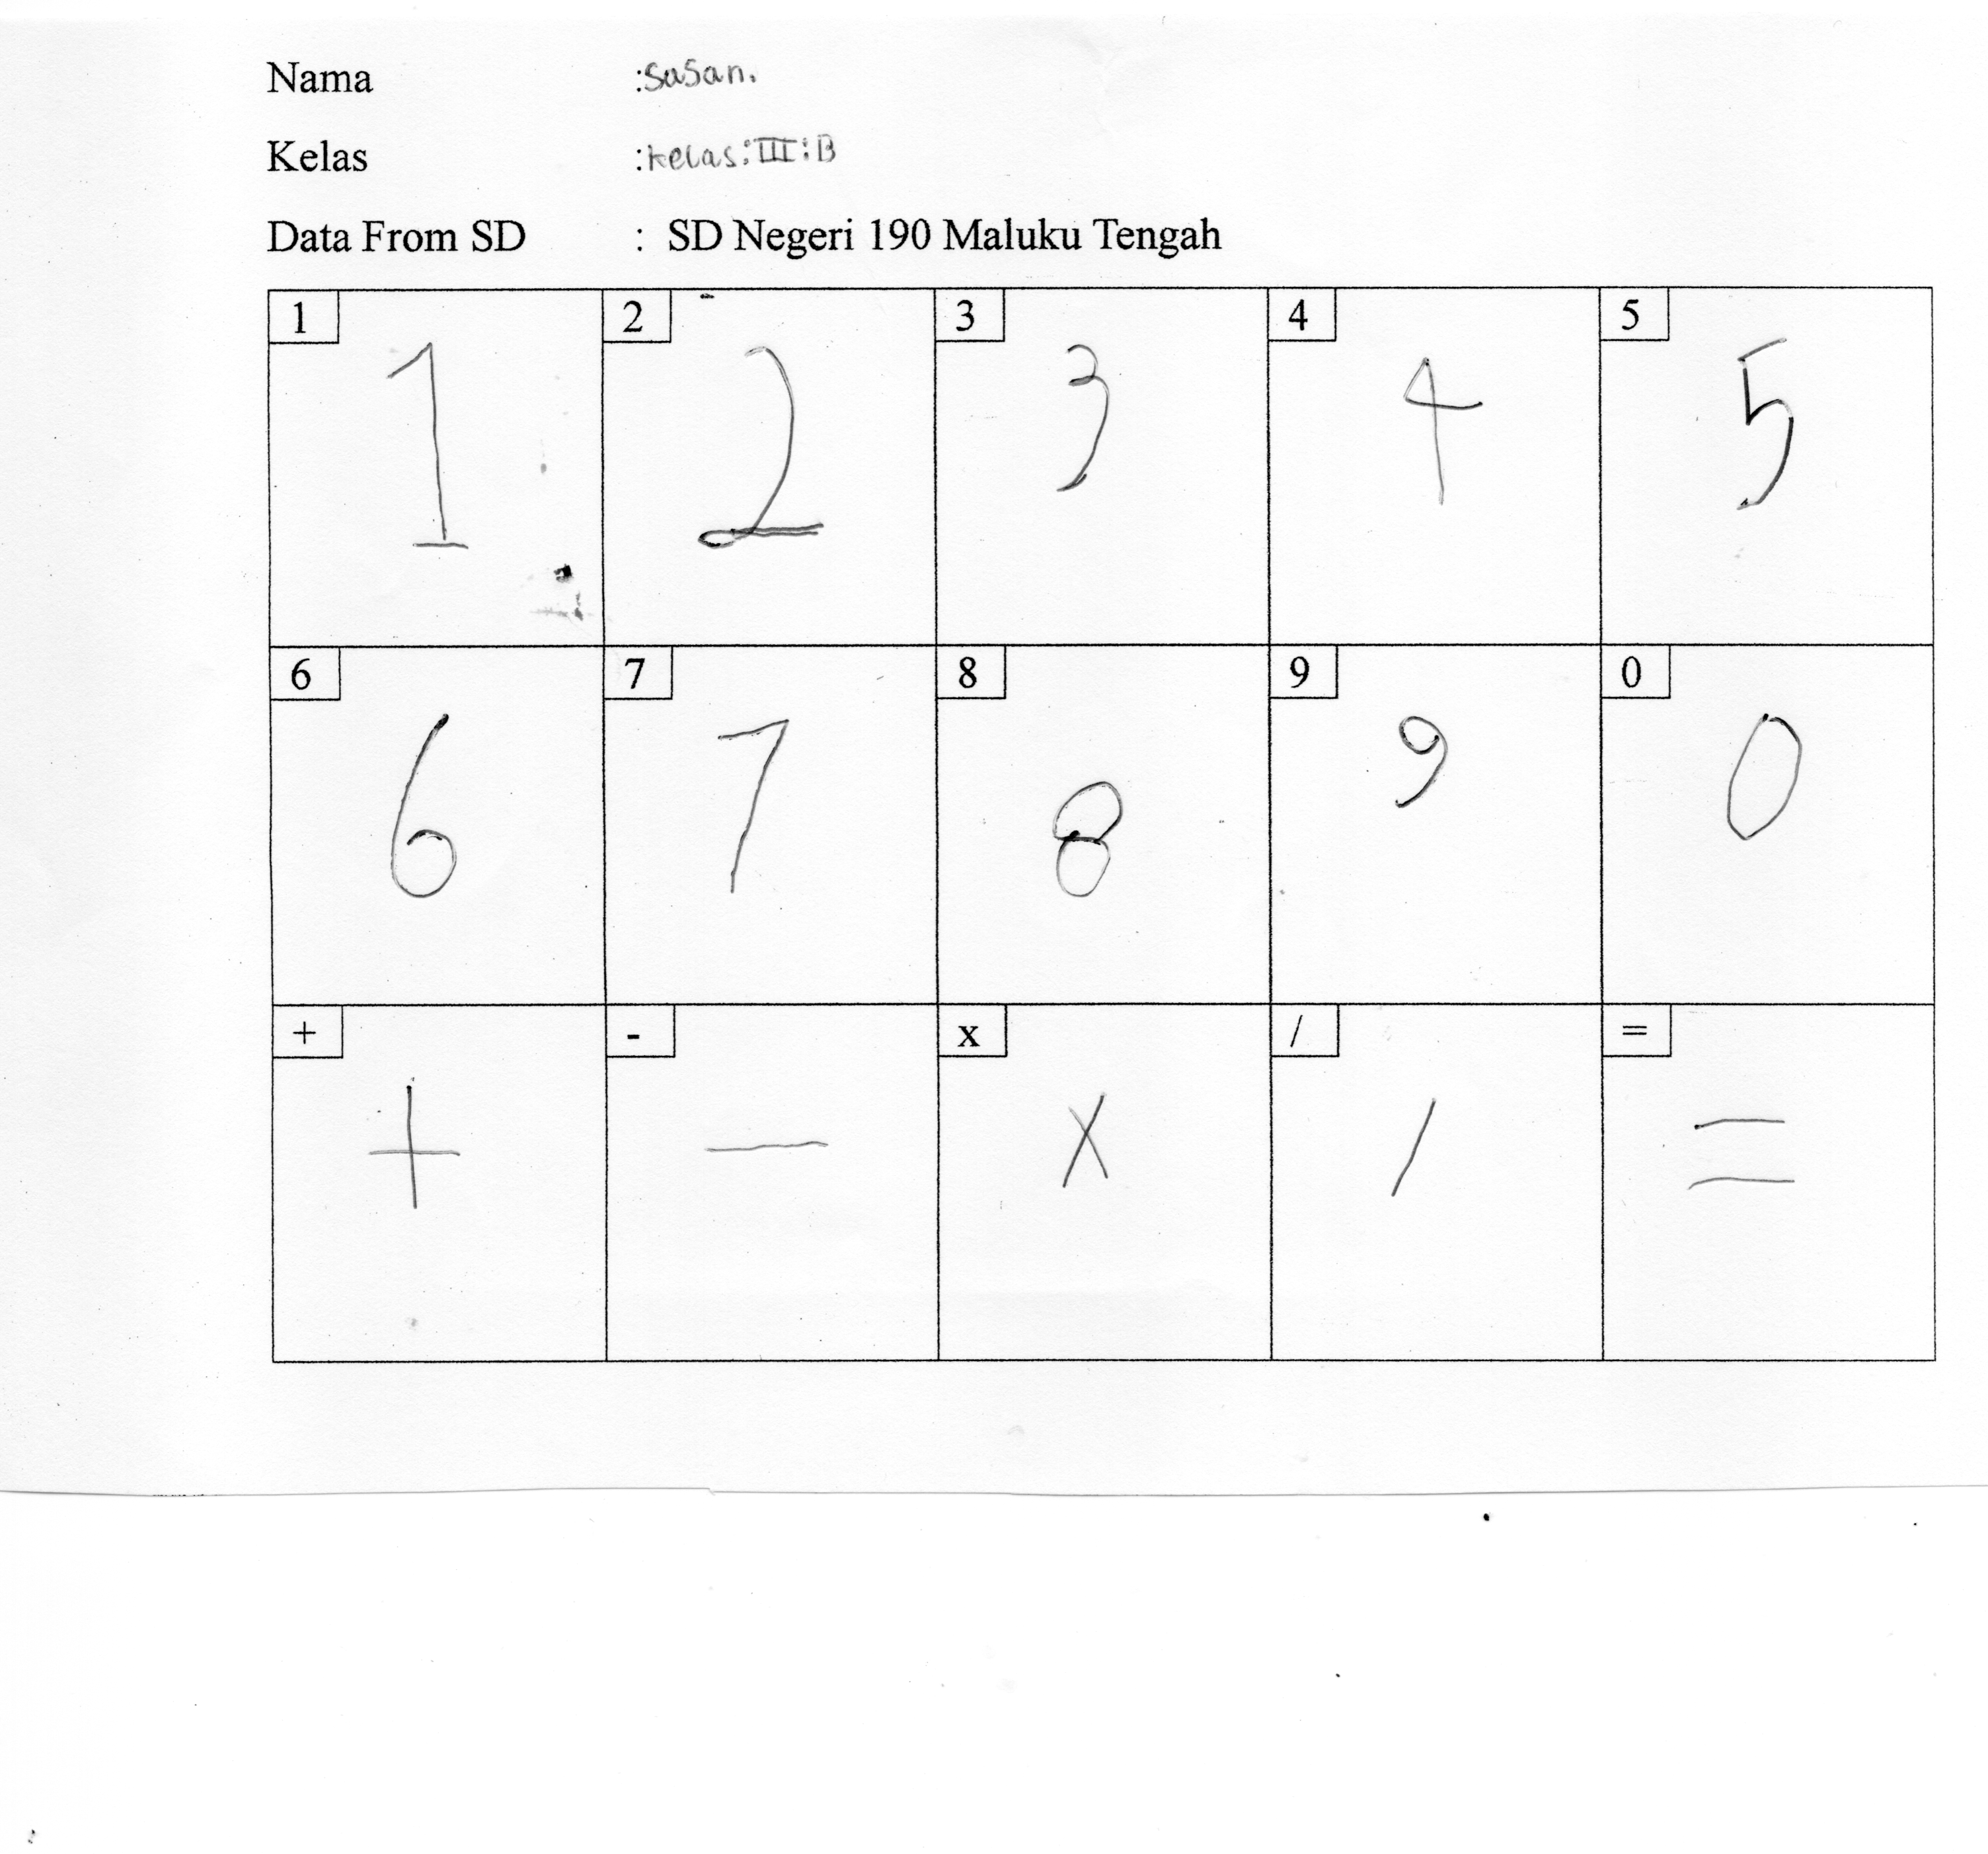 Nama :SaSan.
Kelas :kelas:III:B
Data From SD : SD Negeri 190 Maluku Tengah
1 2 3 4 5
1 2 3 4 5
6 7 8 9 0
6 7 8 9 0
+ - x / =
+ - x / =